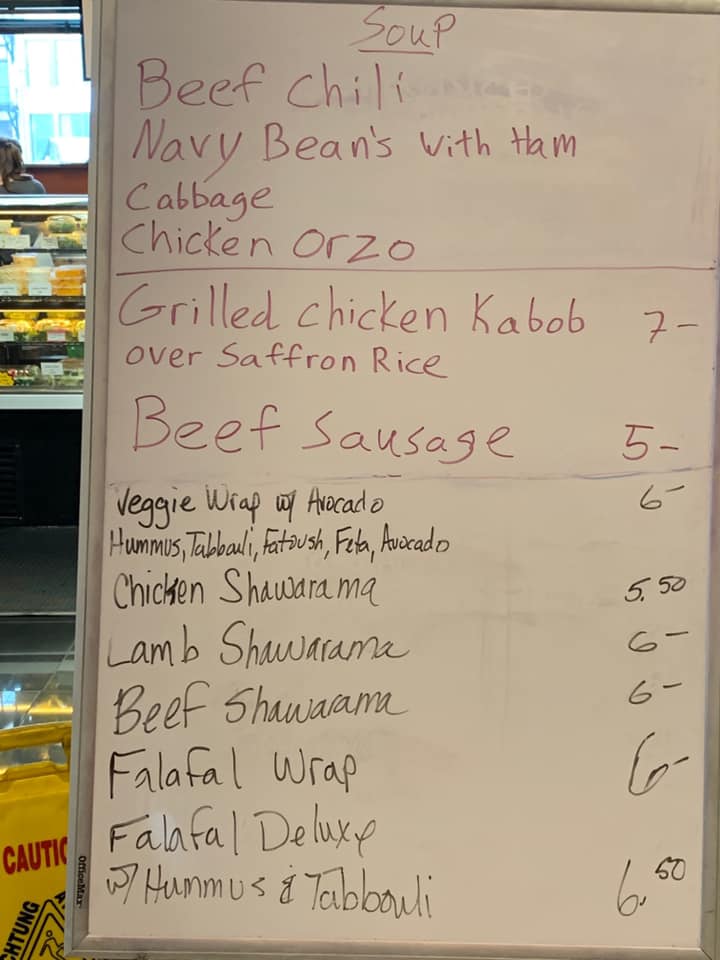 Soup
Beef Chili
Navy Bean's with Ham
Cabbage
Chicken Orzo
Grilled Chicken Kabob 7-
over Saffron Rice
Beef Sausage 5-
Veggie Wrap w/ Avocado 6-
Hummus, Tabbouli, Fatoush, Feta, Avocado
Chicken Shawarama 5.50
Lamb Shawarama 6-
Beef Shawarama 6-
Falafal Wrap 6-
Falafal Deluxe
w/ Hummus & Tabbouli 6.50
OfficeMax
CAUTIO
CHTUNG